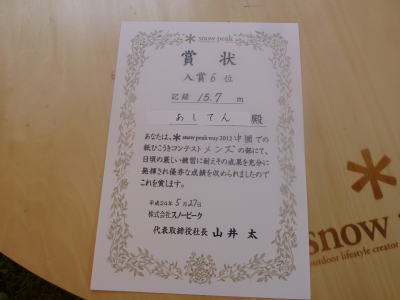 snow peak
賞状
入賞6位
記録 15.7 m
あしてん 殿
あなたは、snow peak way 2012 中国での
紙ひこうきコンテストメンズの部にて、
日頃の厳しい練習に耐えその成果を充分に
発揮され優秀な成績を収められましたので
これを賞します。
平成24年5月27日
株式会社スノーピーク
代表取締役社長 山井 太
snow
outdoor lifestyle creator